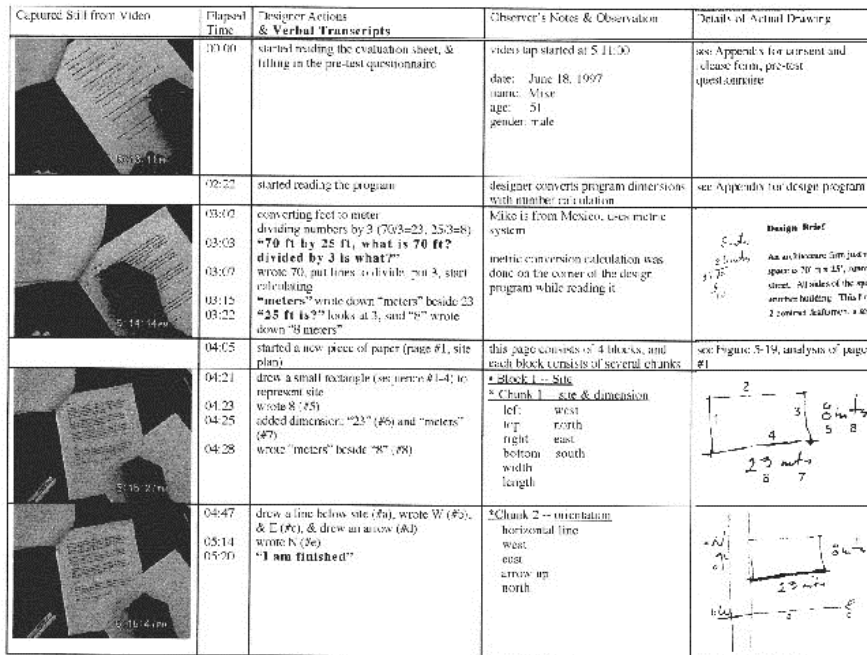 Captured Still from Video
Elapsed Time
Designer Actions
& Verbal Transcripts
Observer's Notes & Observation
Details of Actual Drawing
00:00
started reading the evaluation sheet, &
filling in the pre-test questionnaire
video tap started at 5 11:00
date: June 18, 1997
name: Mike
age: 51
gender: male
see Appendix for consent and
release form, pre-test
questionnaire
02:22
started reading the program
designer converts program dimensions
with number calculation
see Appendix for design program
03:02
converting feet to meter
dividing numbers by 3 (70/3=23, 25/3=8)
03:03
"70 ft by 25 ft, what is 70 ft?
divided by 3 is what?"
03:07
wrote 70, put lines to divide, put 3, start
calculating
03:15
"meters" wrote down "meters" beside 23
03:22
"25 ft is?" looks at 3, said "8" wrote
down "8 meters"
Mike is from Mexico, uses metric
system
metric conversion calculation was
done on the corner of the design
program while reading it
Design Brief
An architecture firm just
space is 70'
street. All sides of the
another building. This
2 contract draftsmen, a
04:05
started a new piece of paper (page #1, site
plan)
this page consists of 4 blocks, and
each block consists of several chunks
see Figure 5-19, analysis of page
#1
04:21
drew a small rectangle (sequence #1-4) to
represent site
04:23
wrote 8 (#5)
04:25
added dimension: "23" (#6) and "meters"
(#7)
04:28
wrote "meters" beside "8" (#8)
* Block 1 -- Site
* Chunk 1 -- site & dimension
left west
top north
right east
bottom south
width
length
2
3
4
5 8
23 mts
6 7
04:47
drew a line below site (#a), wrote W (#b),
& E (#c), & drew an arrow (#d)
05:14
wrote N (#e)
05:20
"I am finished"
*Chunk 2 -- orientation
horizontal line
west
east
arrow up
north
N
23 mts